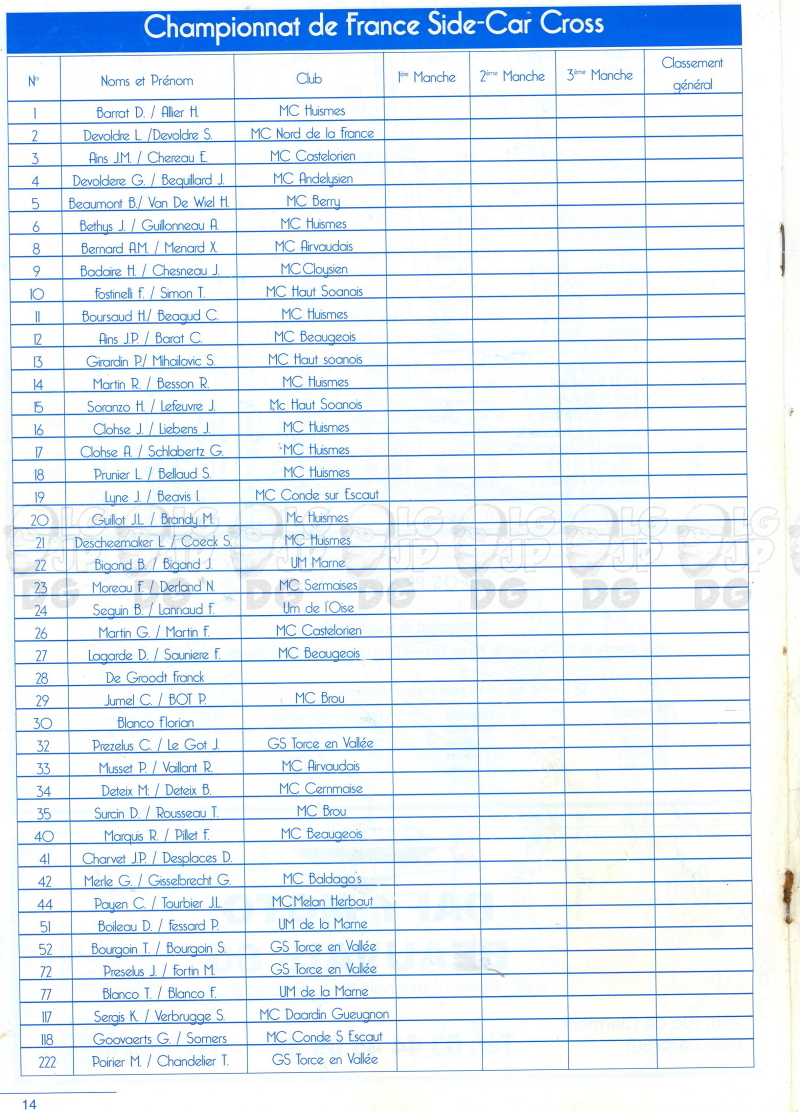 Championnat de France Side-Car Cross
N° Noms et Prénom Club 1ère Manche 2ème Manche 3ème Manche Classement général
1 Barrat D. / Allier H. MC Huismes
2 Devoldre L. /Devoldre S. MC Nord de la France
3 Ains J.M. / Chereau E. MC Castelorien
4 Devoldere G. / Bequillard J. MC Andelysien
5 Beaumont B./ Van De Wiel H. MC Berry
6 Bethys J. / Guillonneau A. MC Huismes
8 Bernard A.M. / Menard X. MC Airvaudais
9 Badaire H. / Chesneau J. MC Cloysien
10 Fostinelli F. / Simon T. MC Haut Soanais
11 Boursaud H./ Beagud C. MC Huismes
12 Ains J.P. / Barat C. MC Beaugeois
13 Girardin P./ Mihailovic S. MC Haut soanois
14 Martin R. / Besson R. MC Huismes
15 Soranzo H. / Lefeuvre J. Mc Haut Soanois
16 Clohse J. / Liebens J. MC Huismes
17 Clohse A. / Schlabertz G. MC Huismes
18 Prunier L. / Bellaud S. MC Huismes
19 Lyne J. / Beavis I. MC Conde sur Escaut
20 Guillot J.L. / Brandy M. Mc Huismes
21 Descheemaker L. / Coeck S. MC Huismes
22 Bigand B. / Bigand J. UM Marne
23 Moreau F. / Derland N. MC Sermaises
24 Seguin B. / Lannaud F. Um de l'Oise
26 Martin G. / Martin F. MC Castelorien
27 Lagarde D. / Sauniere F. MC Beaugeois
28 De Groodt Franck
29 Jumel C. / BOT P. MC Brou
30 Blanco Florian
32 Prezelus C. / Le Got J. GS Torce en Vallée
33 Musset P. / Vaillant R. MC Airvaudais
34 Deteix M. / Deteix B. MC Cernmaise
35 Surcin D. / Rousseau T. MC Brou
40 Marquis R. / Pillet F. MC Beaugeois
41 Charvet J.P. / Desplaces D.
42 Merle G. / Gisselbrecht G. MC Baldago's
44 Payen C. / Tourbier J.L. MCMelan Herbaut
51 Boileau D. / Fessard P. UM de la Marne
52 Bourgoin T. / Bourgoin S. GS Torce en Vallée
72 Preselus J. / Fortin M. GS Torce en Vallée
77 Blanco T. / Blanco F. UM de la Marne
117 Sergis K. / Verbrugge S. MC Daardin Gueugnon
118 Goovaerts G. / Somers MC Conde S Escaut
222 Poirier M. / Chandelier T. GS Torce en Vallée
LG JP DG LG JP DG LG JP DG LG JP DG LG JP DG LG JP DG LG JP DG
14